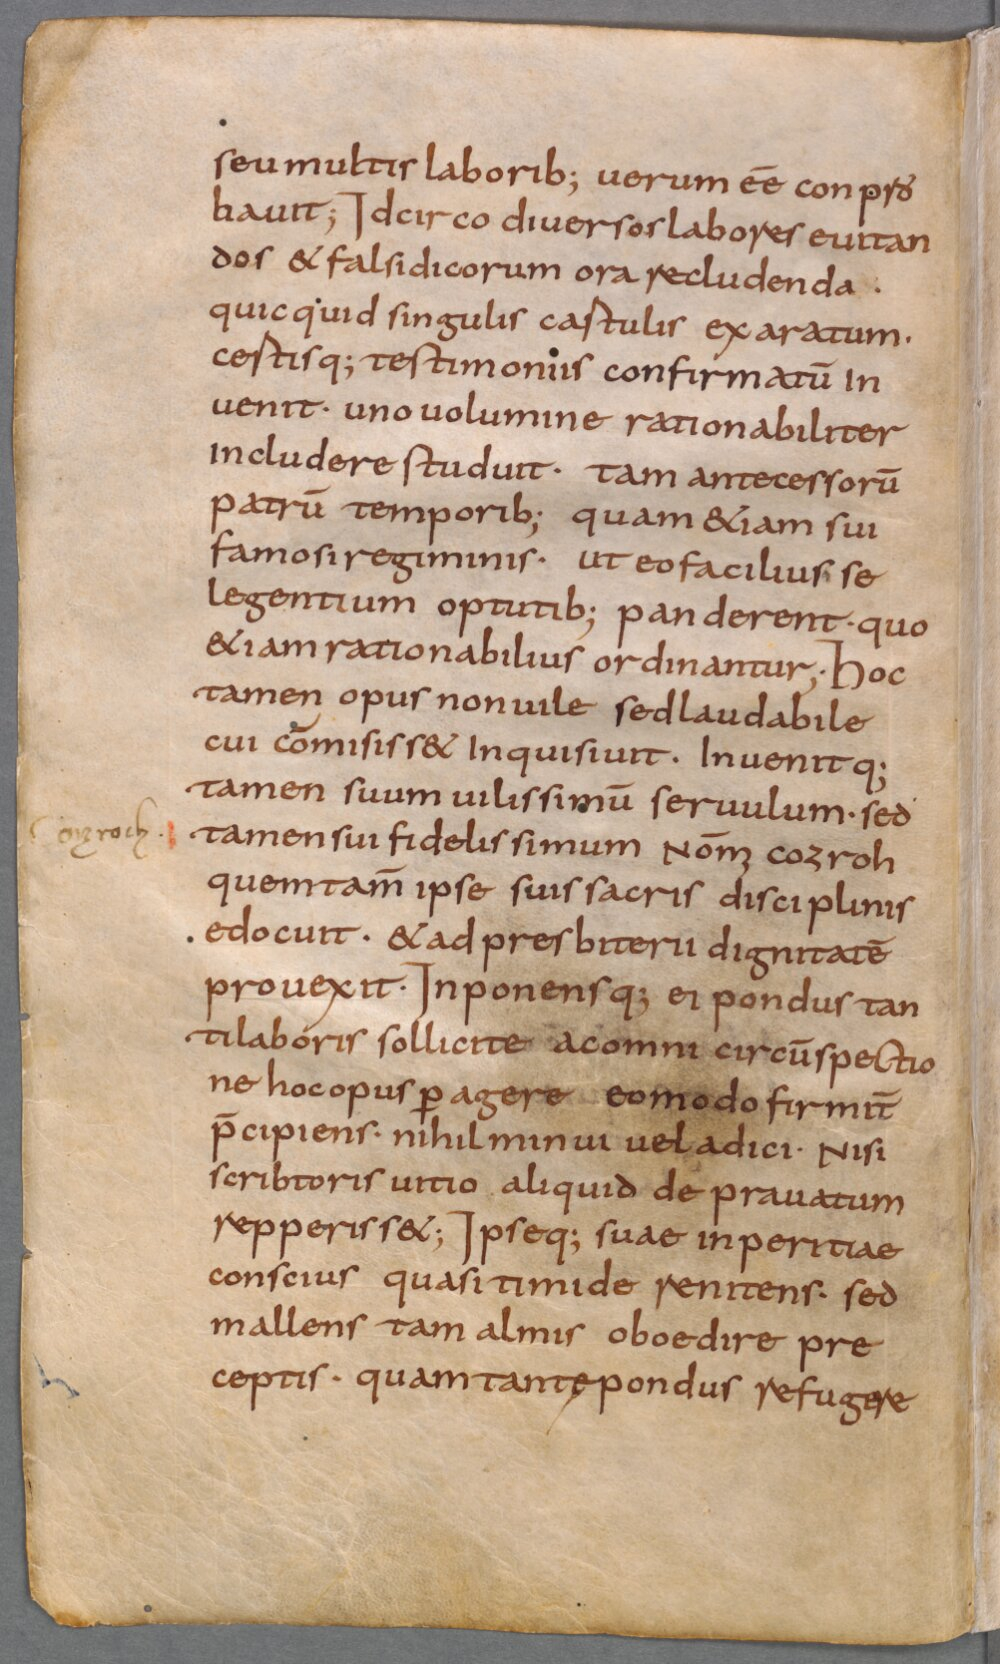 seu multis laborib; uerum ee̅ conpro
bauit; Idcirco diuersos labores euitan
dos & falsidicorum ora recludenda ·
quicquid singulis castulis exaratum ·
cestisq; testimoniis confirmatu̅ in
uenit · uno uolumine rationabiliter
includere studuit · tam antecessoru̅
patru̅ temporib; quam &iam sui
famosi regiminis · ut eo facilius se
legentium optutib; panderent · quo
&iam rationabilius ordinantur; Hoc
tamen opus non uile sed laudabile
cui co̅misiss& inquisiuit · Inuenitq;
tamen suum uilissimu̅ seruulum · sed
conzroh · tamen sui fidelissimum nom̅ cozroh
quem tam̅ ipse suis sacris disciplinis
edocuit · & ad presbiterii dignitate̅
prouexit · Inponensq; ei pondus tan
ti laboris sollicite ac omni circu̅spectio
ne hoc opus ꝑagere eo modo firmit̅
p̅cipiens · nihil minui uel adici · Nisi
scribtoris uitio aliquid deprauatum
repperiss&; Ipseq; suae inperitiae
conscius quasi timide renitens · sed
mallens tam almis oboedire pre
ceptis · quam tantę pondus refugere